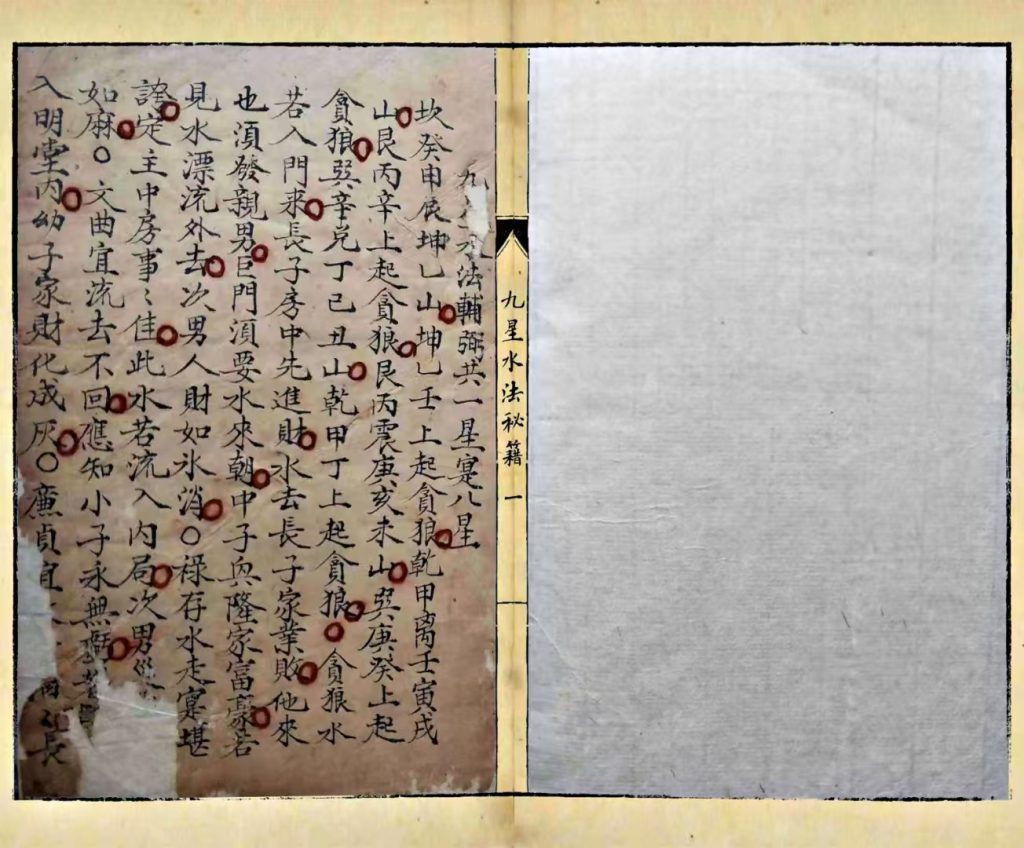 九星水法秘籍 一
九 水法輔弼共一星寔八星
坎癸申辰坤乙山坤乙壬上起貪狼乾甲离壬寅戌
山艮丙辛上起貪狼艮丙震庚亥未山巽庚癸上起
貪狼巽辛兑丁巳丑山乾甲丁上起貪狼○貪狼水
若入門来長子房中先進財水去長子家業敗他來
也湏發親男巨門湏要水來朝中子興隆家富豪若
見水漂流外去次男人財如氷消○祿存水走寔堪
誇定主中房事〻佳此水若流入內局次男
如麻○文曲宜流去不回應知小子永無
入明堂内幼子家財化成灰○廉貞宜 長